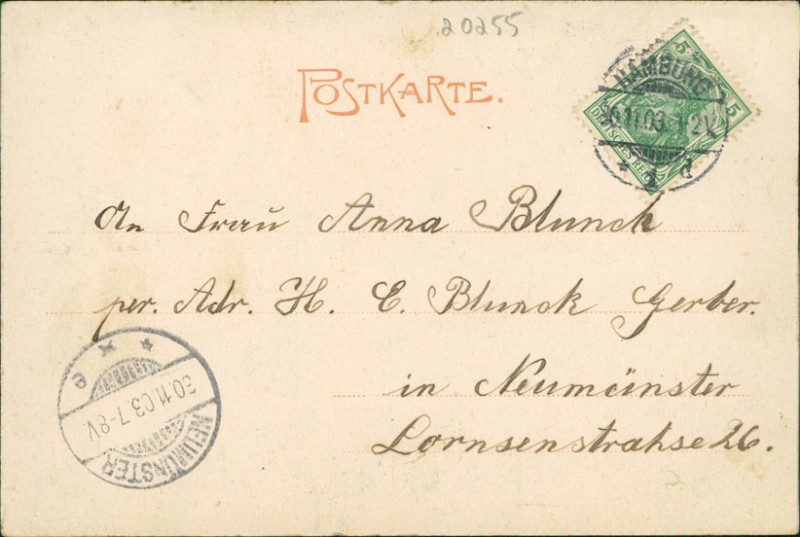 20255
POSTKARTE.
5 5
DEUTSCHES REICH
HAMBURG
11.03. 1-2
An Frau Anna Blunck
per. Adr. H. E. Blunck Gerber.
in Neumünster
Lornsenstrahse 26.
* * e
30.11.03. 7-8V.
NEUMÜNSTER